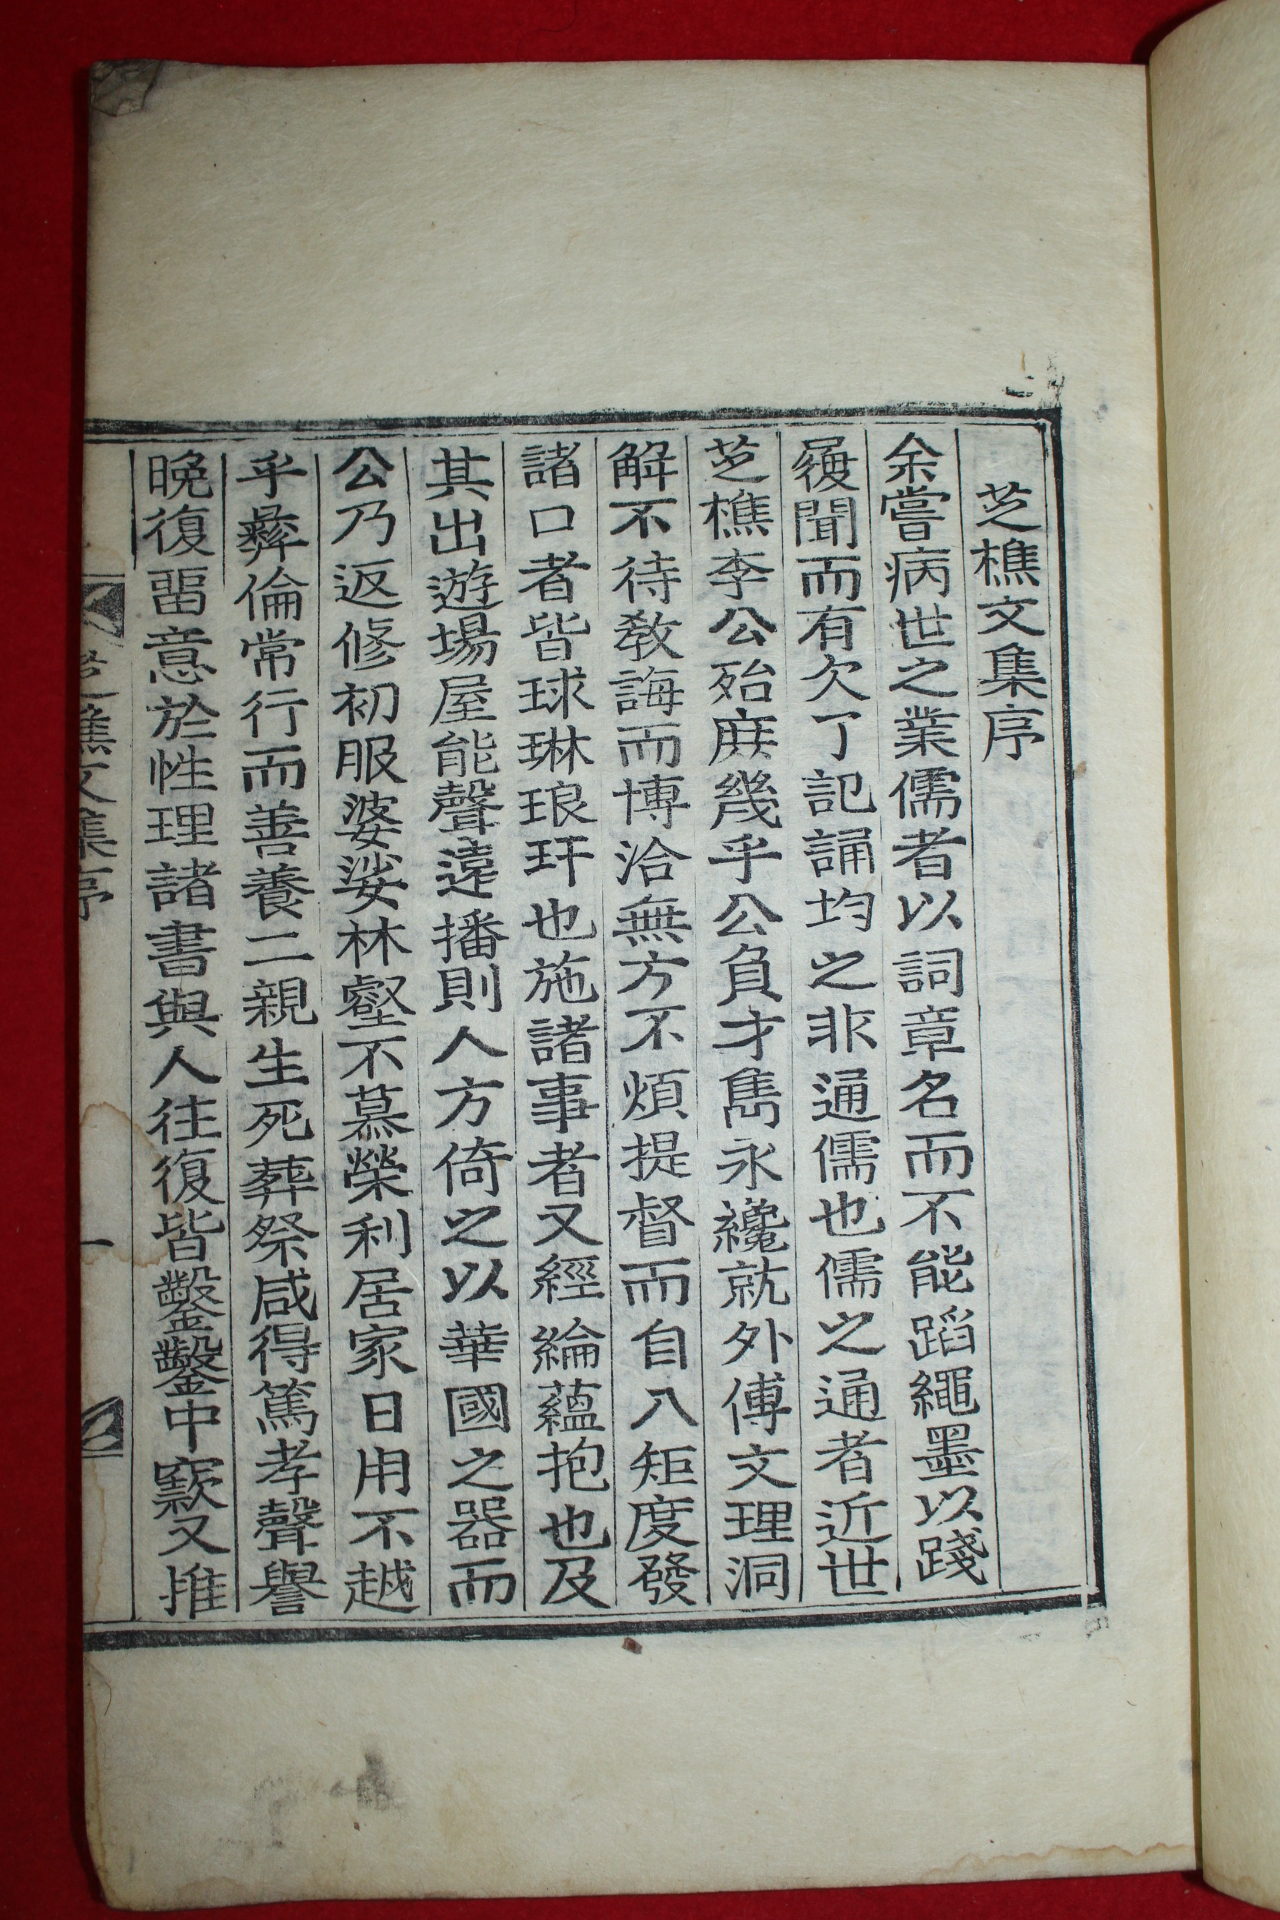 芝樵文集序
余嘗病世之業儒者以詞章名而不能蹈繩墨以踐
履聞而有欠了記誦均之非通儒也儒之通者近世
芝樵李公殆庶幾乎公負才雋永纔就外傅文理洞
解不待教誨而博洽無方不煩提督而自八矩度發
諸口者皆球琳琅玕也施諸事者又經綸蘊抱也及
其出遊場屋能聲遠播則人方倚之以華國之器而
公乃返修初服婆娑林壑不慕榮利居家日用不越
乎彝倫常行而善養二親生死葬祭咸得篤孝聲譽
晩復畱意於性理諸書與人往復皆鑿鑿中窾又推
芝樵文集序
一